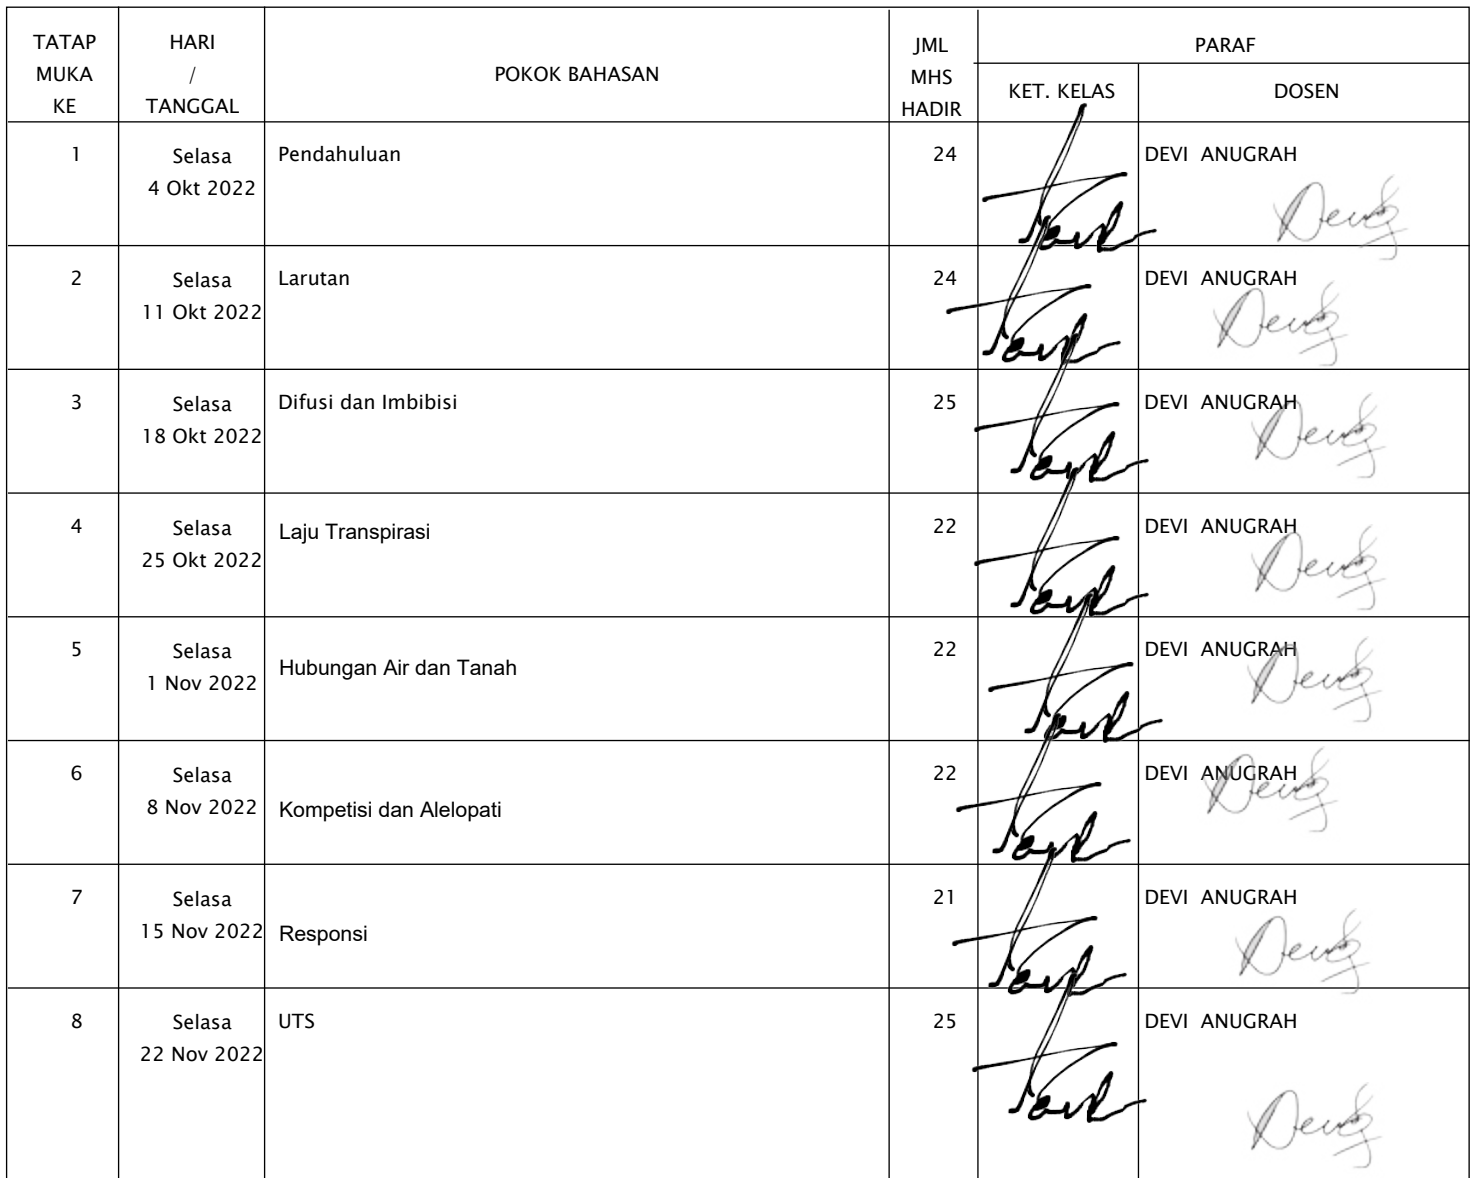 TATAP MUKA KE
HARI / TANGGAL
POKOK BAHASAN
JML MHS HADIR
PARAF
KET. KELAS
DOSEN
1
Selasa
4 Okt 2022
Pendahuluan
24
DEVI ANUGRAH
2
Selasa
11 Okt 2022
Larutan
24
DEVI ANUGRAH
3
Selasa
18 Okt 2022
Difusi dan Imbibisi
25
DEVI ANUGRAH
4
Selasa
25 Okt 2022
Laju Transpirasi
22
DEVI ANUGRAH
5
Selasa
1 Nov 2022
Hubungan Air dan Tanah
22
DEVI ANUGRAH
6
Selasa
8 Nov 2022
Kompetisi dan Alelopati
22
DEVI ANUGRAH
7
Selasa
15 Nov 2022
Responsi
21
DEVI ANUGRAH
8
Selasa
22 Nov 2022
UTS
25
DEVI ANUGRAH